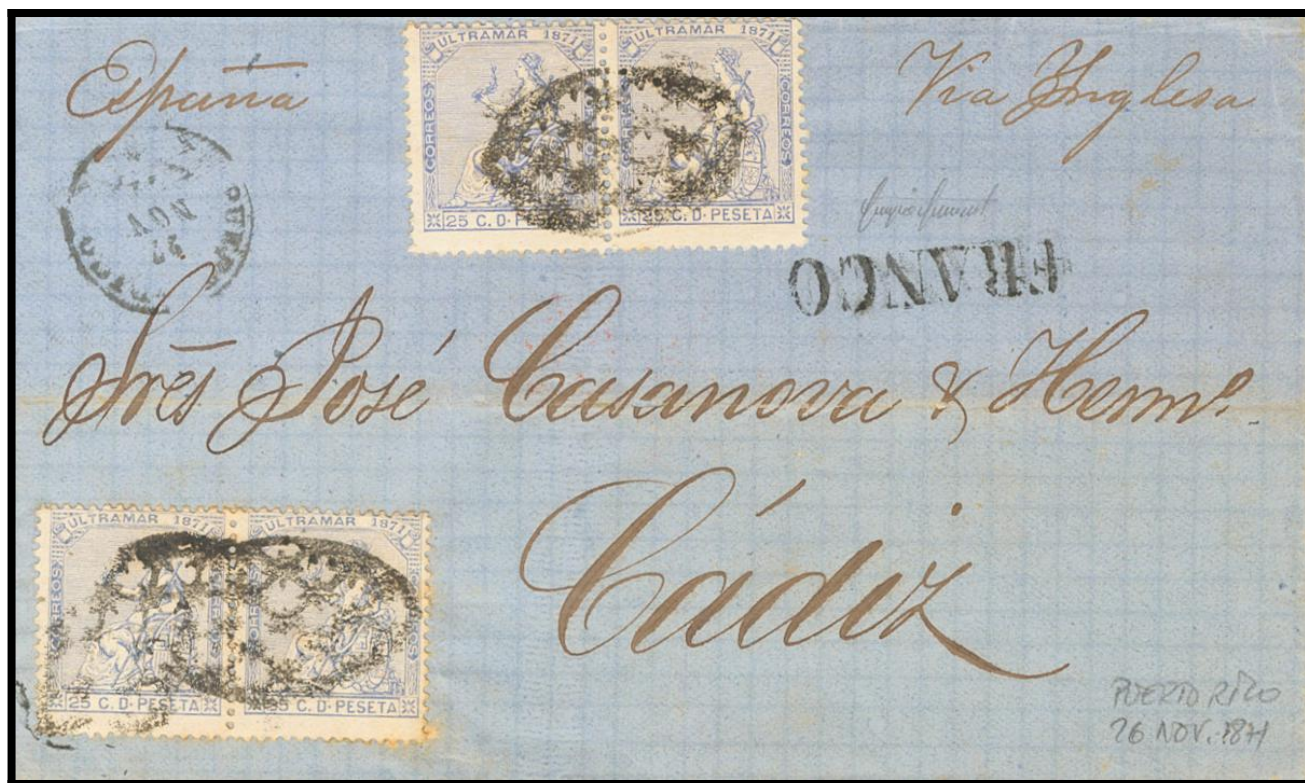 España
Via Inglesa
ULTRAMAR 1871
CORREOS
25 C. D. PESETA
ULTRAMAR 1871
CORREOS
25 C. D. PESETA
NOV
FRANCO
Sres José Casanova & Hermo
Cádiz
ULTRAMAR 1871
CORREOS
25 C. D. PESETA
ULTRAMAR 1871
CORREOS
25 C. D. PESETA
PUERTO RICO
26 NOV. 1871